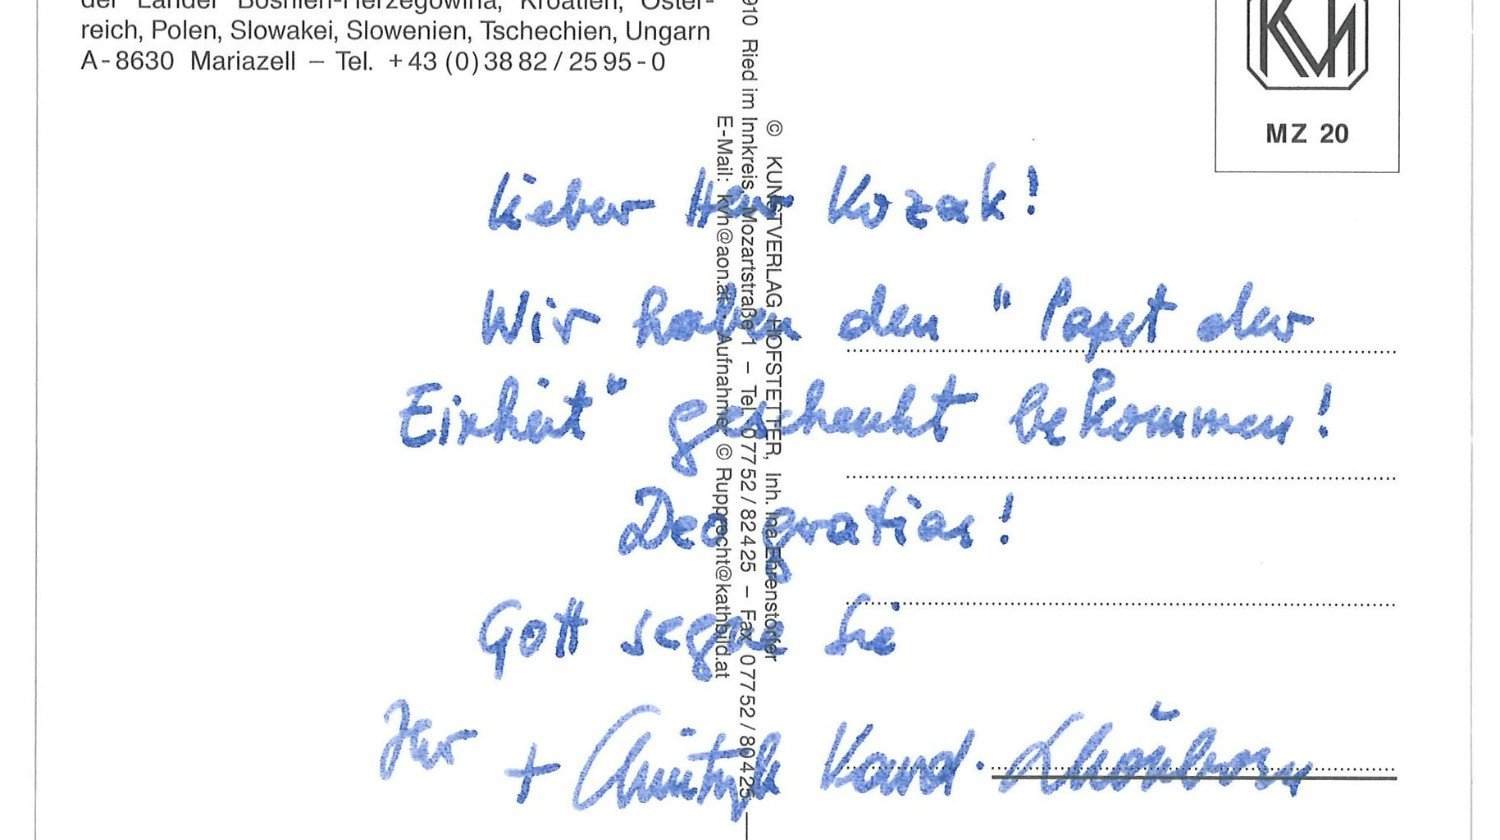 der Länder Bosnien-Herzegowina, Kroatien, Öster-
reich, Polen, Slowakei, Slowenien, Tschechien, Ungarn
A-8630 Mariazell – Tel. +43 (0)3882/2595-0
KVH
MZ 20
© KUNSTVERLAG HOFSTETTER, Inh. Ina Ehrenstorfer
910 Ried im Innkreis, Mozartstraße 1 – Tel. 07752/82425 – Fax 07752/80425
E-Mail: kvh@aon.at Aufnahme: © Rupprecht@kathbild.at
Lieber Herr Kozak!
Wir haben den "Papst der
Einheit" geschenkt bekommen!
Deo gratias!
Gott segne Sie
Ihr
+ Christoph Kard. Schönborn